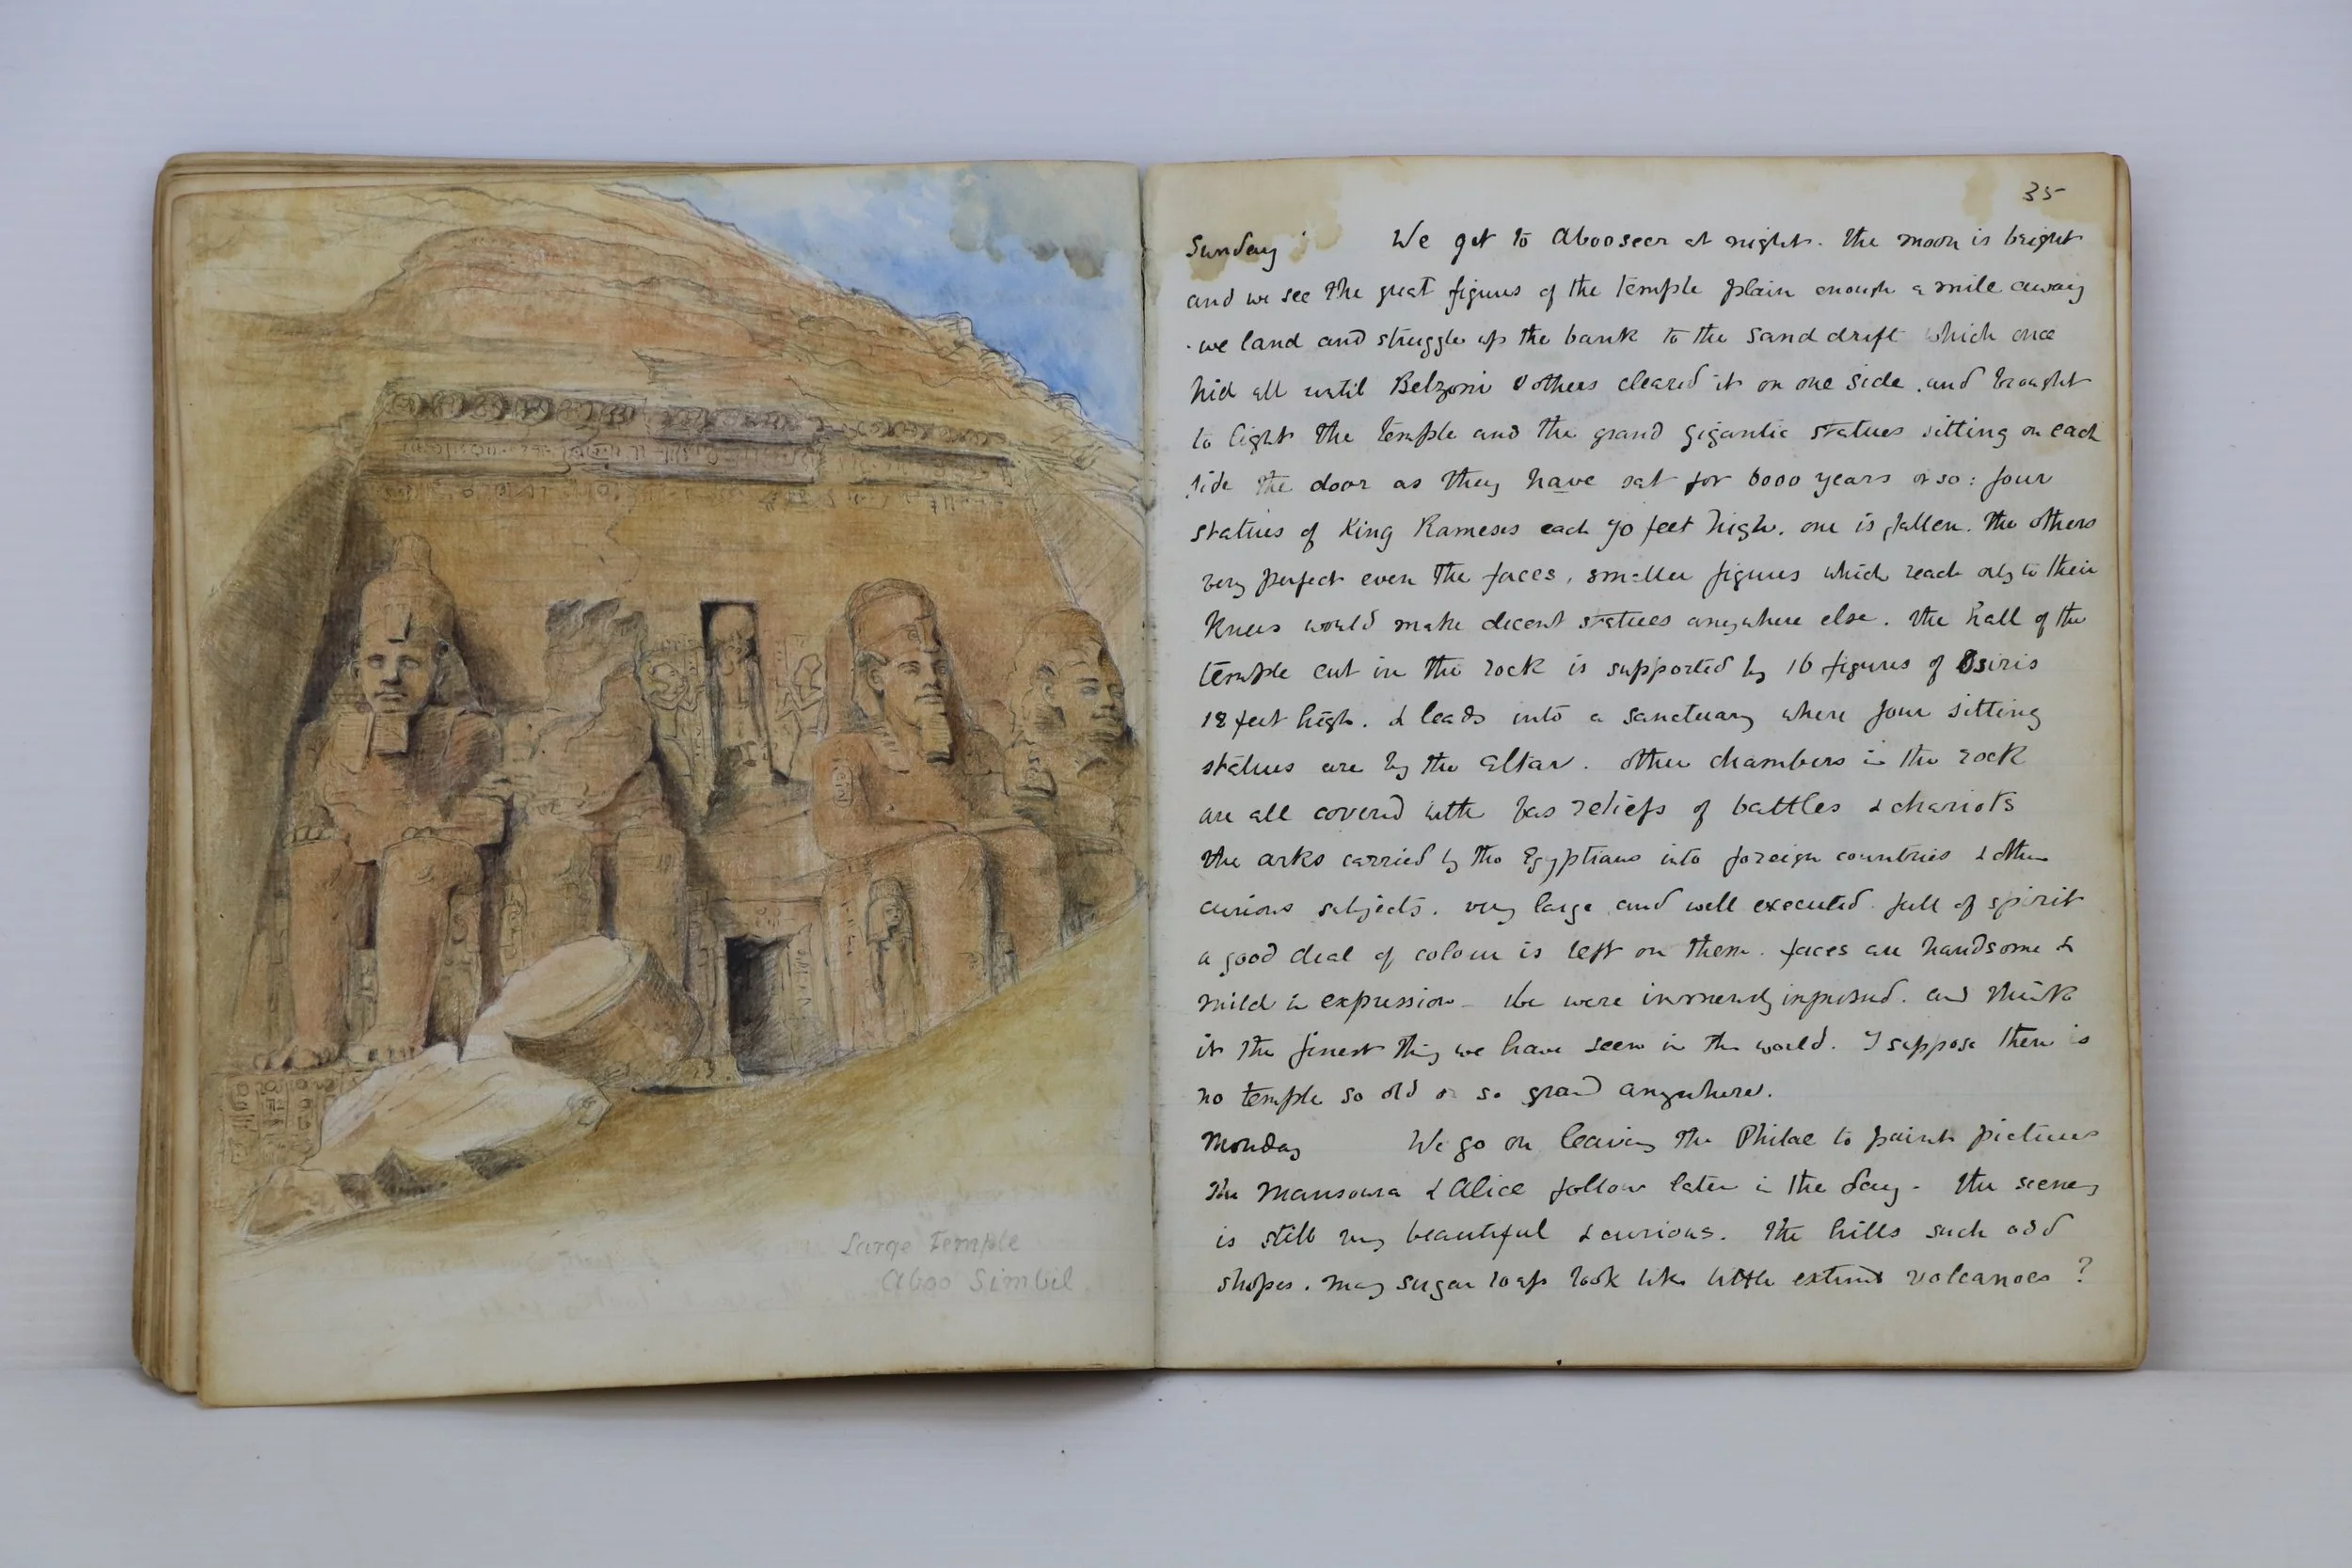 Large Temple
Aboo Simbil
35
Sunday We get to Abooseer at night. The moon is bright
and we see the great figures of the temple plain enough a mile away
we land and struggle up the bank to the sand drift which once
hid all until Belzoni & others cleared it on one side. and brought
to light the temple and the grand gigantic statues sitting on each
side the door as they have sat for 6000 years or so: four
statues of King Rameses each 70 feet high. one is fallen. The others
very perfect even the faces, smaller figures which reach only to their
knees would make decent statues anywhere else. The hall of the
temple cut in the rock is supported by 16 figures of Osiris
18 feet high. & leads into a sanctuary where four sitting
statues are by the altar. other chambers in the rock
are all covered with bas reliefs of battles & chariots
the arks carried by the Egyptians into foreign countries & other
curious subjects. very large and well executed. full of spirit
a good deal of colour is left on them. faces are handsome &
mild in expression We were immensely impressed. and think
it the finest thing we have seen in the world. I suppose there is
no temple so old or so grand anywhere.
Monday We go on leaving the Philae to paint pictures
The Mansoura & Alice follow later in the day. The scenery
is still very beautiful & curious. The hills such odd
shapes. many sugar loafs look like little extinct volcanoes ?